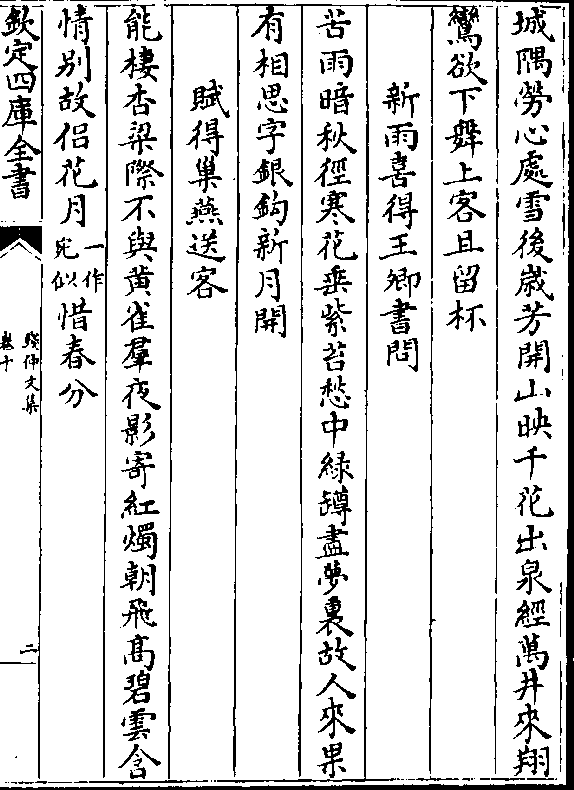 城隅勞心處雪後歳芳開山映千花出泉經萬井來翔
鸞欲下舞上客且留杯
新雨喜得王卿書問
苦雨暗秋徑寒花垂紫苔愁中綠罇盡夢裏故人來果
有相思字銀鉤新月開
賦得巢燕送客
能棲杏梁際不與黄雀羣夜影寄紅燭朝飛髙碧雲含
情别故侣花月一作宛似惜春分
欽定四庫全書
錢仲文集
卷十
二